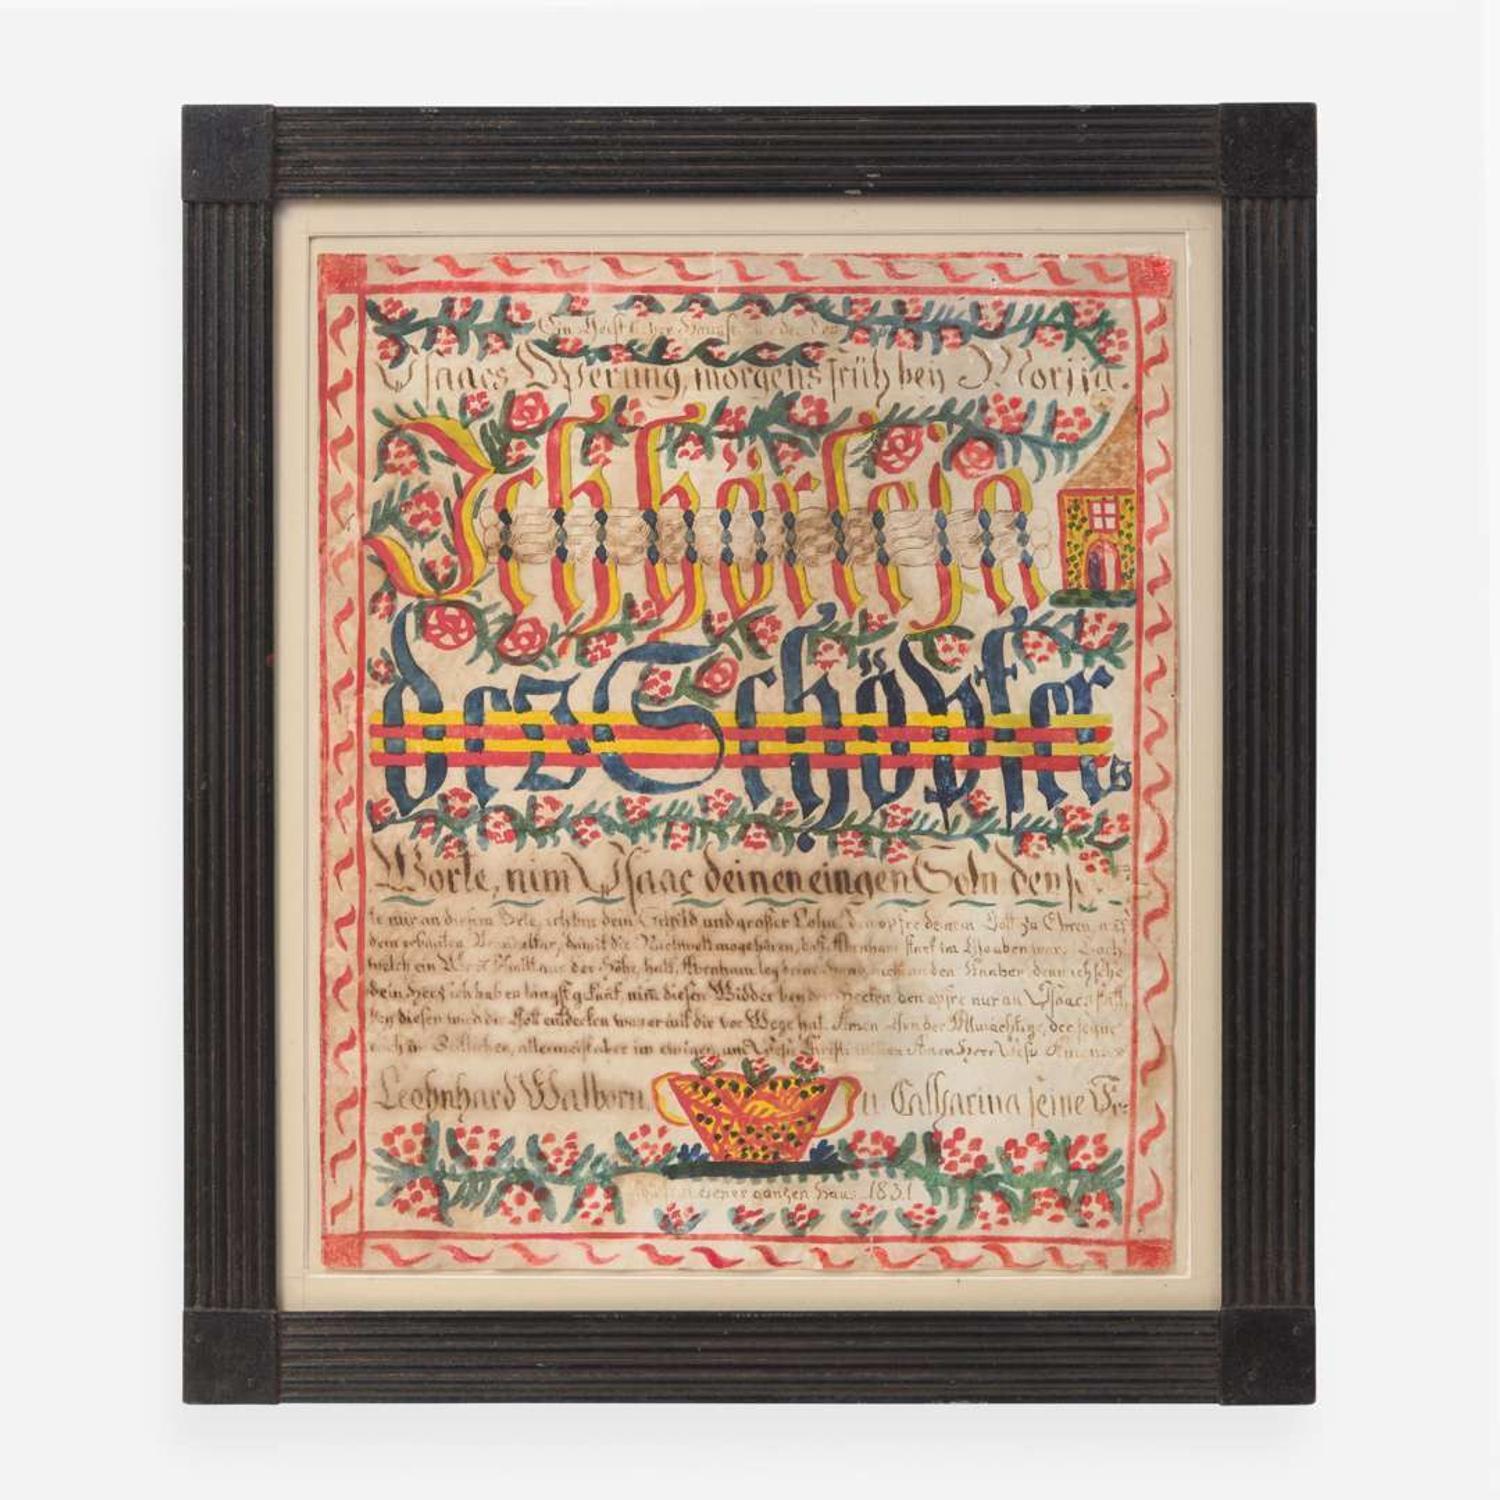 Ein Geistlicher
Isaacs Opferung, morgens früh bey Morija.
Ich hör la ja
des Schöpfers
Worte, nim Isaac deinen eingen Sohn den
te mir an diesem Orte, ich bin dein Schild und großer Lohn. den opfre deinem Gott zu Ehren, auf
dem erbauten Brandaltar, damit die Nachwelt moge hören, daß Abraham starck im Glauben war. Doch
welch ein Wort aus der Höhe, halt, Abraham leg deine Hand nicht an den Knaben, denn ich sehe
dein Herz ich hab es längst gekant, nim diesen Widder bey den Hecken den opfre nur an Isaacs statt,
bey diesen wird dir Gott entdecken was er mit dir vor Wege hat. Amen der Allmächtige, der segne
euch in allermeist aber im ewigen, und Jesu Christi willen Amen Herr Jesu Amen
Leohnhard Walborn, u Catharina seine Fr:
ganzen Haus 1831